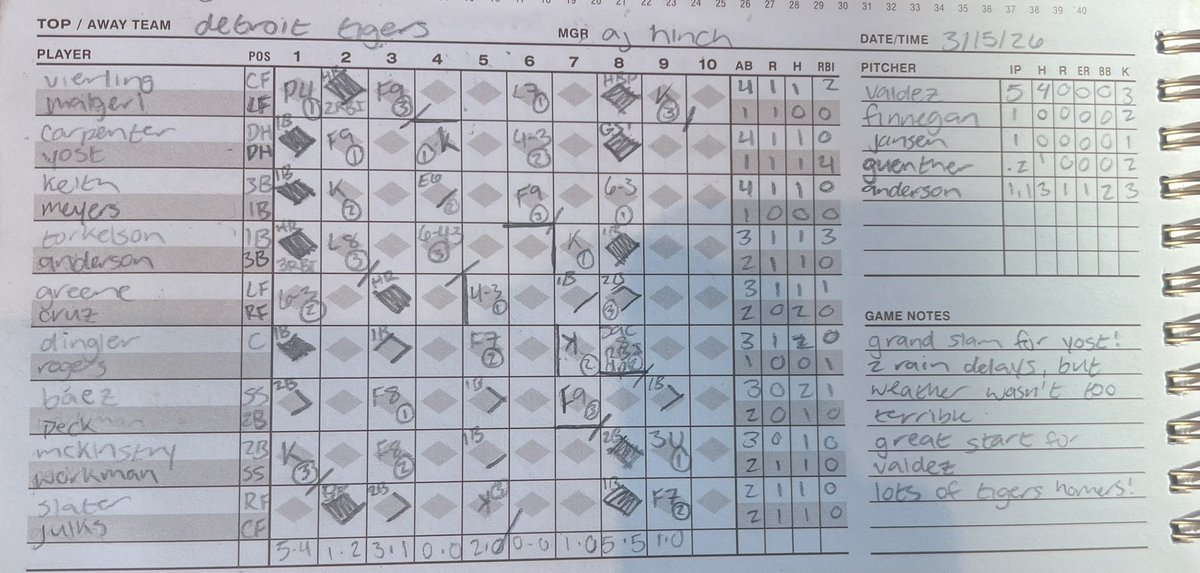 16 17 18 19 20 21 22 23 24 25 26 27 28 29 30 31 32 33 34 35 36 37 38 39 40
TOP / AWAY TEAM detroit tigers MGR aj hinch DATE/TIME 3/15/26
PLAYER POS 1 2 3 4 5 6 7 8 9 10 AB R H RBI
vierling CF P4 1 HR 2RBI F9 3 L7 1 HBP K 3 4 1 1 2
malgeri LF 1 1 0 0
carpenter DH 1B F9 1 1 K 4-3 2 GS! 4 1 1 0
yost DH 1 1 1 4
keith 3B 1B K 2 E6 2 F9 2 6-3 1 4 1 1 0
meyers 1B 1 0 0 0
torkelson 1B HR 3RBI L8 3 6-4-3 3 K 1 1B 3 1 1 3
anderson 3B 2 1 1 0
greene LF 6-3 2 HR 4-3 1 1B 2B 3 3 1 1 1
cruz RF 2 0 2 0
dingler C 1B 1B F7 2 K 2 sac 8 3 1 2 0
rogers 1 0 0 1
báez SS 2B F8 1 1B F9 3 1B 3 0 2 1
peck 2B 2 0 1 0
mckinstry 2B K 3 F8 2 1B 2B 3U 1 3 0 1 0
workman SS 2 1 1 0
slater RF 2B K 3 1B F7 2 2 1 1 0
julks CF 2 1 1 0
5.4 1.2 3.1 0.0 2.0 0.0 1.0 5.5 1.0
PITCHER IP H R ER BB K
valdez 5 4 0 0 0 3
finnegan 1 0 0 0 0 2
jansen 1 0 0 0 0 1
guenther .2 1 0 0 0 2
anderson 1.1 3 1 1 2 3
GAME NOTES
grand slam for yost!
2 rain delays, but
weather wasn't too
terrible
great start for
valdez
lots of tigers homers!